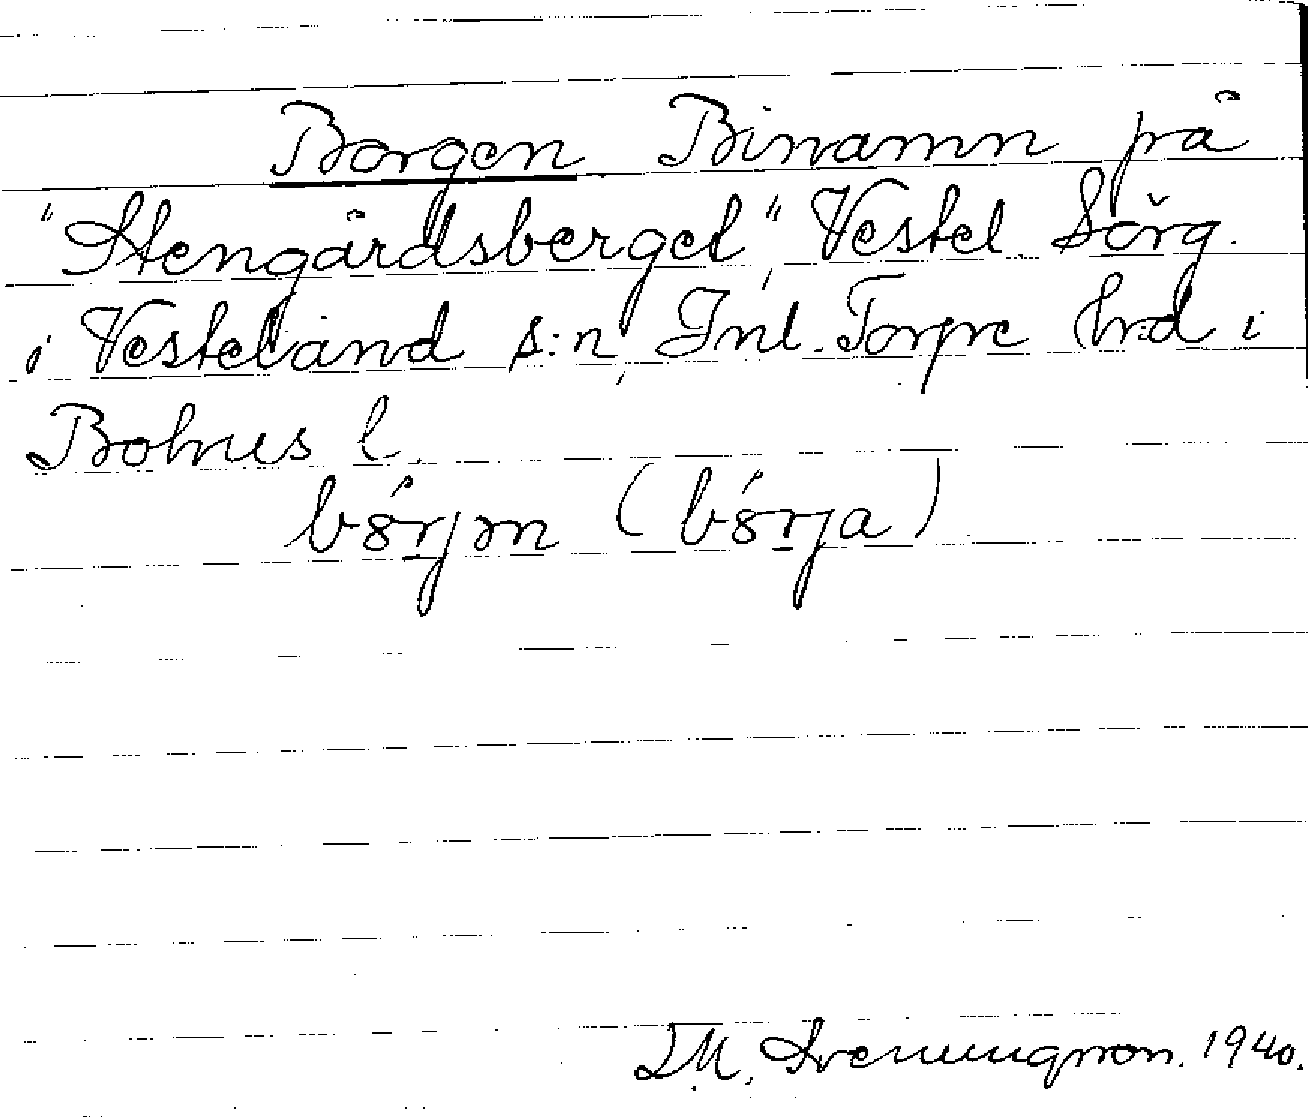 Borgen Binamn på
"Stengårdsberget", Vestel. Sörg.
i Vesterland s:n, Inl. Torpe hrd i
Bohus l.
bǿrjən (bǿrja)
1940.